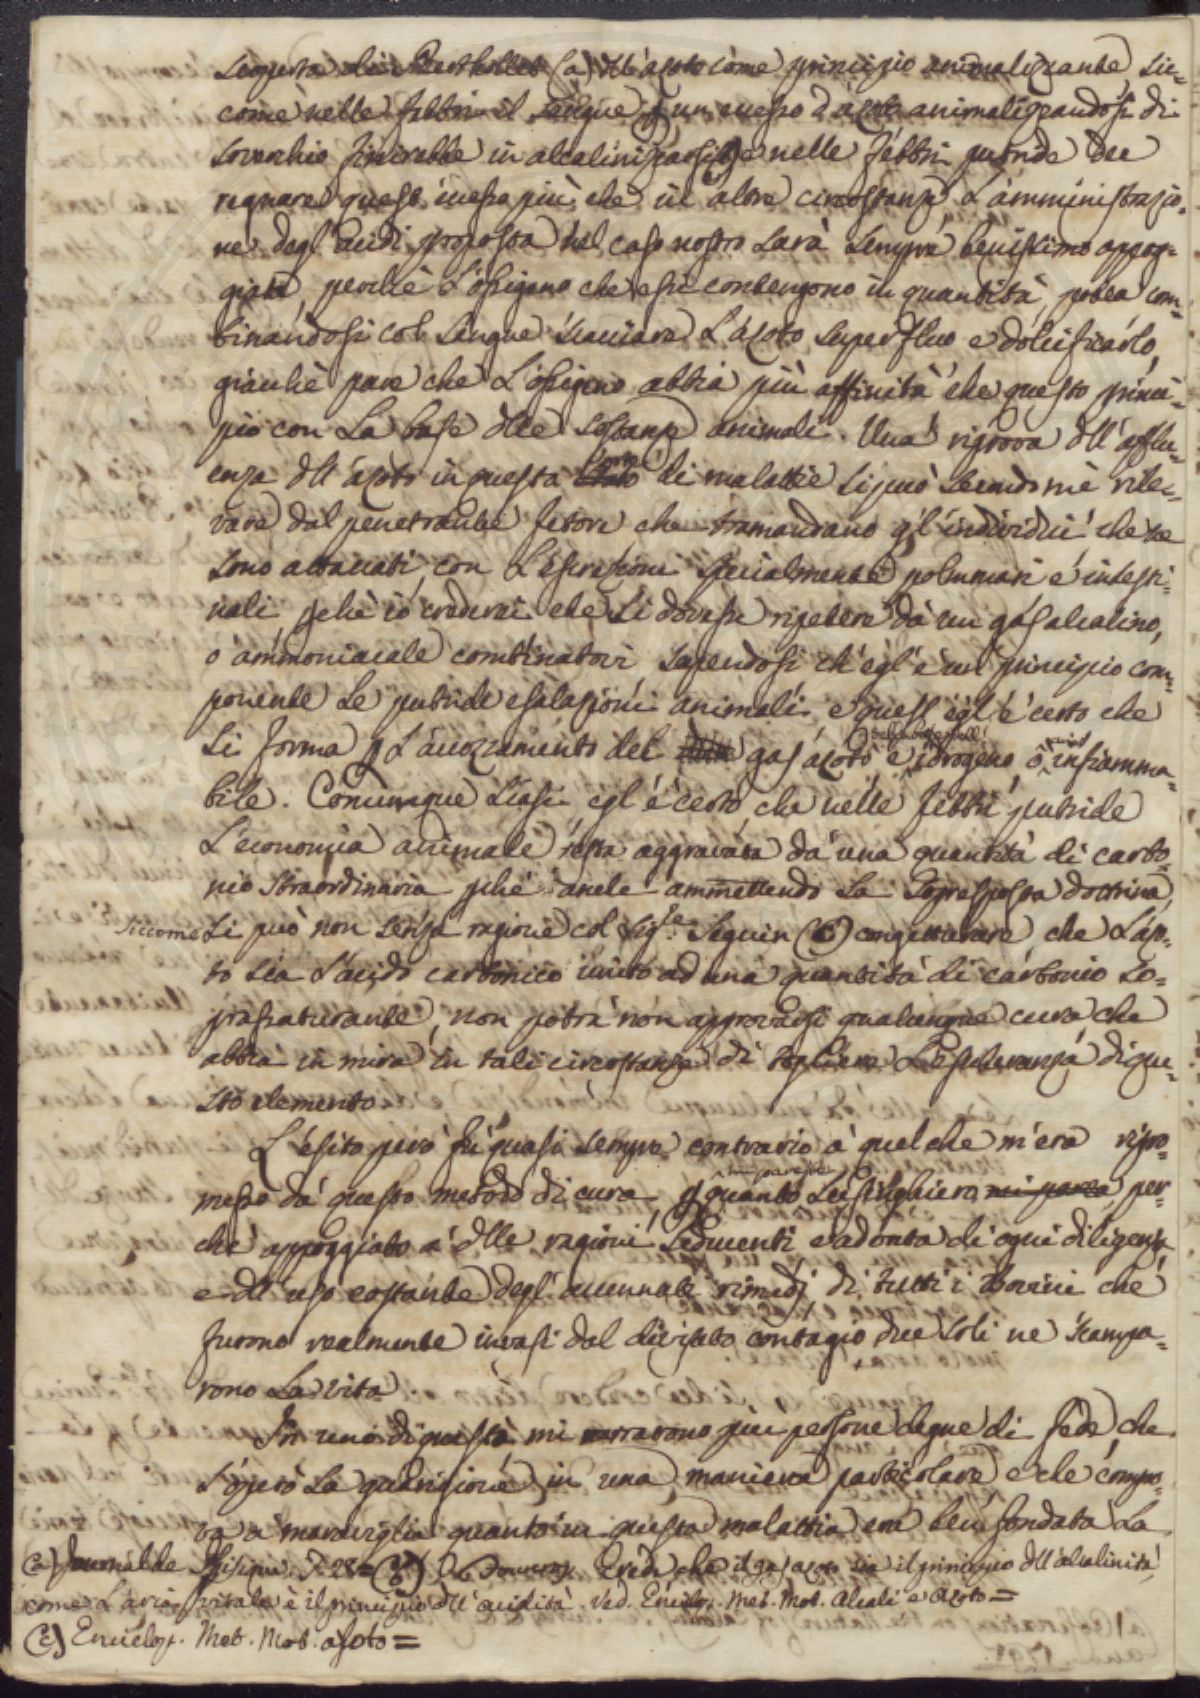 scoperta di Berthollet (a) dell'azoto come principio animalizzante sic-
come nelle febbri il sangue p un eccesso d'azoto animalizzandosi di
soverchio finirebbe in alcalinizzarsi (b) e nelle febbri putride dee
regnare quest'eccesso più che in altre circostanze L'amministrazio-
ne degl'acidi proposta nel caso nostro sarà sempre benissimo appog-
giata, perchè L'ossigeno che essi contengono in quantità, potea com-
binandosi col sangue scacciare L'azoto superfluo e dolcificarlo,
giacchè pare che L'ossigeno abbia più affinità che questo princi-
pio con La base dlle sostanze animali. Una riprova dll'afflu-
enza dll'azoto in questa di malattie si può secondo mè rile-
vare dal penetrante fetore che tramandano gl'individui che ne
sono attaccati con L'escrezioni specialmente polmonari e intesti-
nali, pchè io crederei che si dovesse ripetere da un gas alcalino,
o ammoniacale combinatovi, sapendosi ch'egl'è un principio com-
ponente Le putride esalazioni animali, e quest'egl'è certo che
si forma p L'accozzamento del gas azoto e idrogeno, ò infiamma-
bile. Comunque siasi egl'è certo, che nelle febbri putride
L'economia animale resta aggravata da una quantità di carbo-
nio straordinaria pchè anche ammettendo La sopresposta dottrina,
siccome si può non senza ragione col Sig.re Seguin (c) congetturare che L'azo-
to sia L'acido carbonico unito ad una quantità di carbonio so-
prasaturante, non potrà non approvarsi qualunque cura che
abbia in mira in tali circostanze di togliere L'esuberanza di que-
sto elemento.
L'esito però fù quasi sempre contrario a quel che m'era ripro-
messo da questo metodo di cura, p quanto Lusinghiero mi paresse per-
chè appoggiato a dlle ragioni seducenti e ad onta di ogni diligenza
e dll'uso costante degl'accennati rimedj di tutti i Bovini che
furono realmente invasi dal divisato contagio due soli ne scampa-
rono La vita.
In uno di questi mi narrarono più persone degne di fede che
s'operò La guarigione in una maniera particolare e che compro-
va a maraviglia quanto in questa malattia era ben fondata La
(a) Journal de Phisique. T. 28 = (b) De Fourcroy crede che il gas azoto sia il principio dll'alcalinità,
come L'aria vitale è il principio dll'acidità. Ved. Enciclop. Met. Mot. Alcali e azoto =
(c) Enciclop. Met. Mot. azoto =